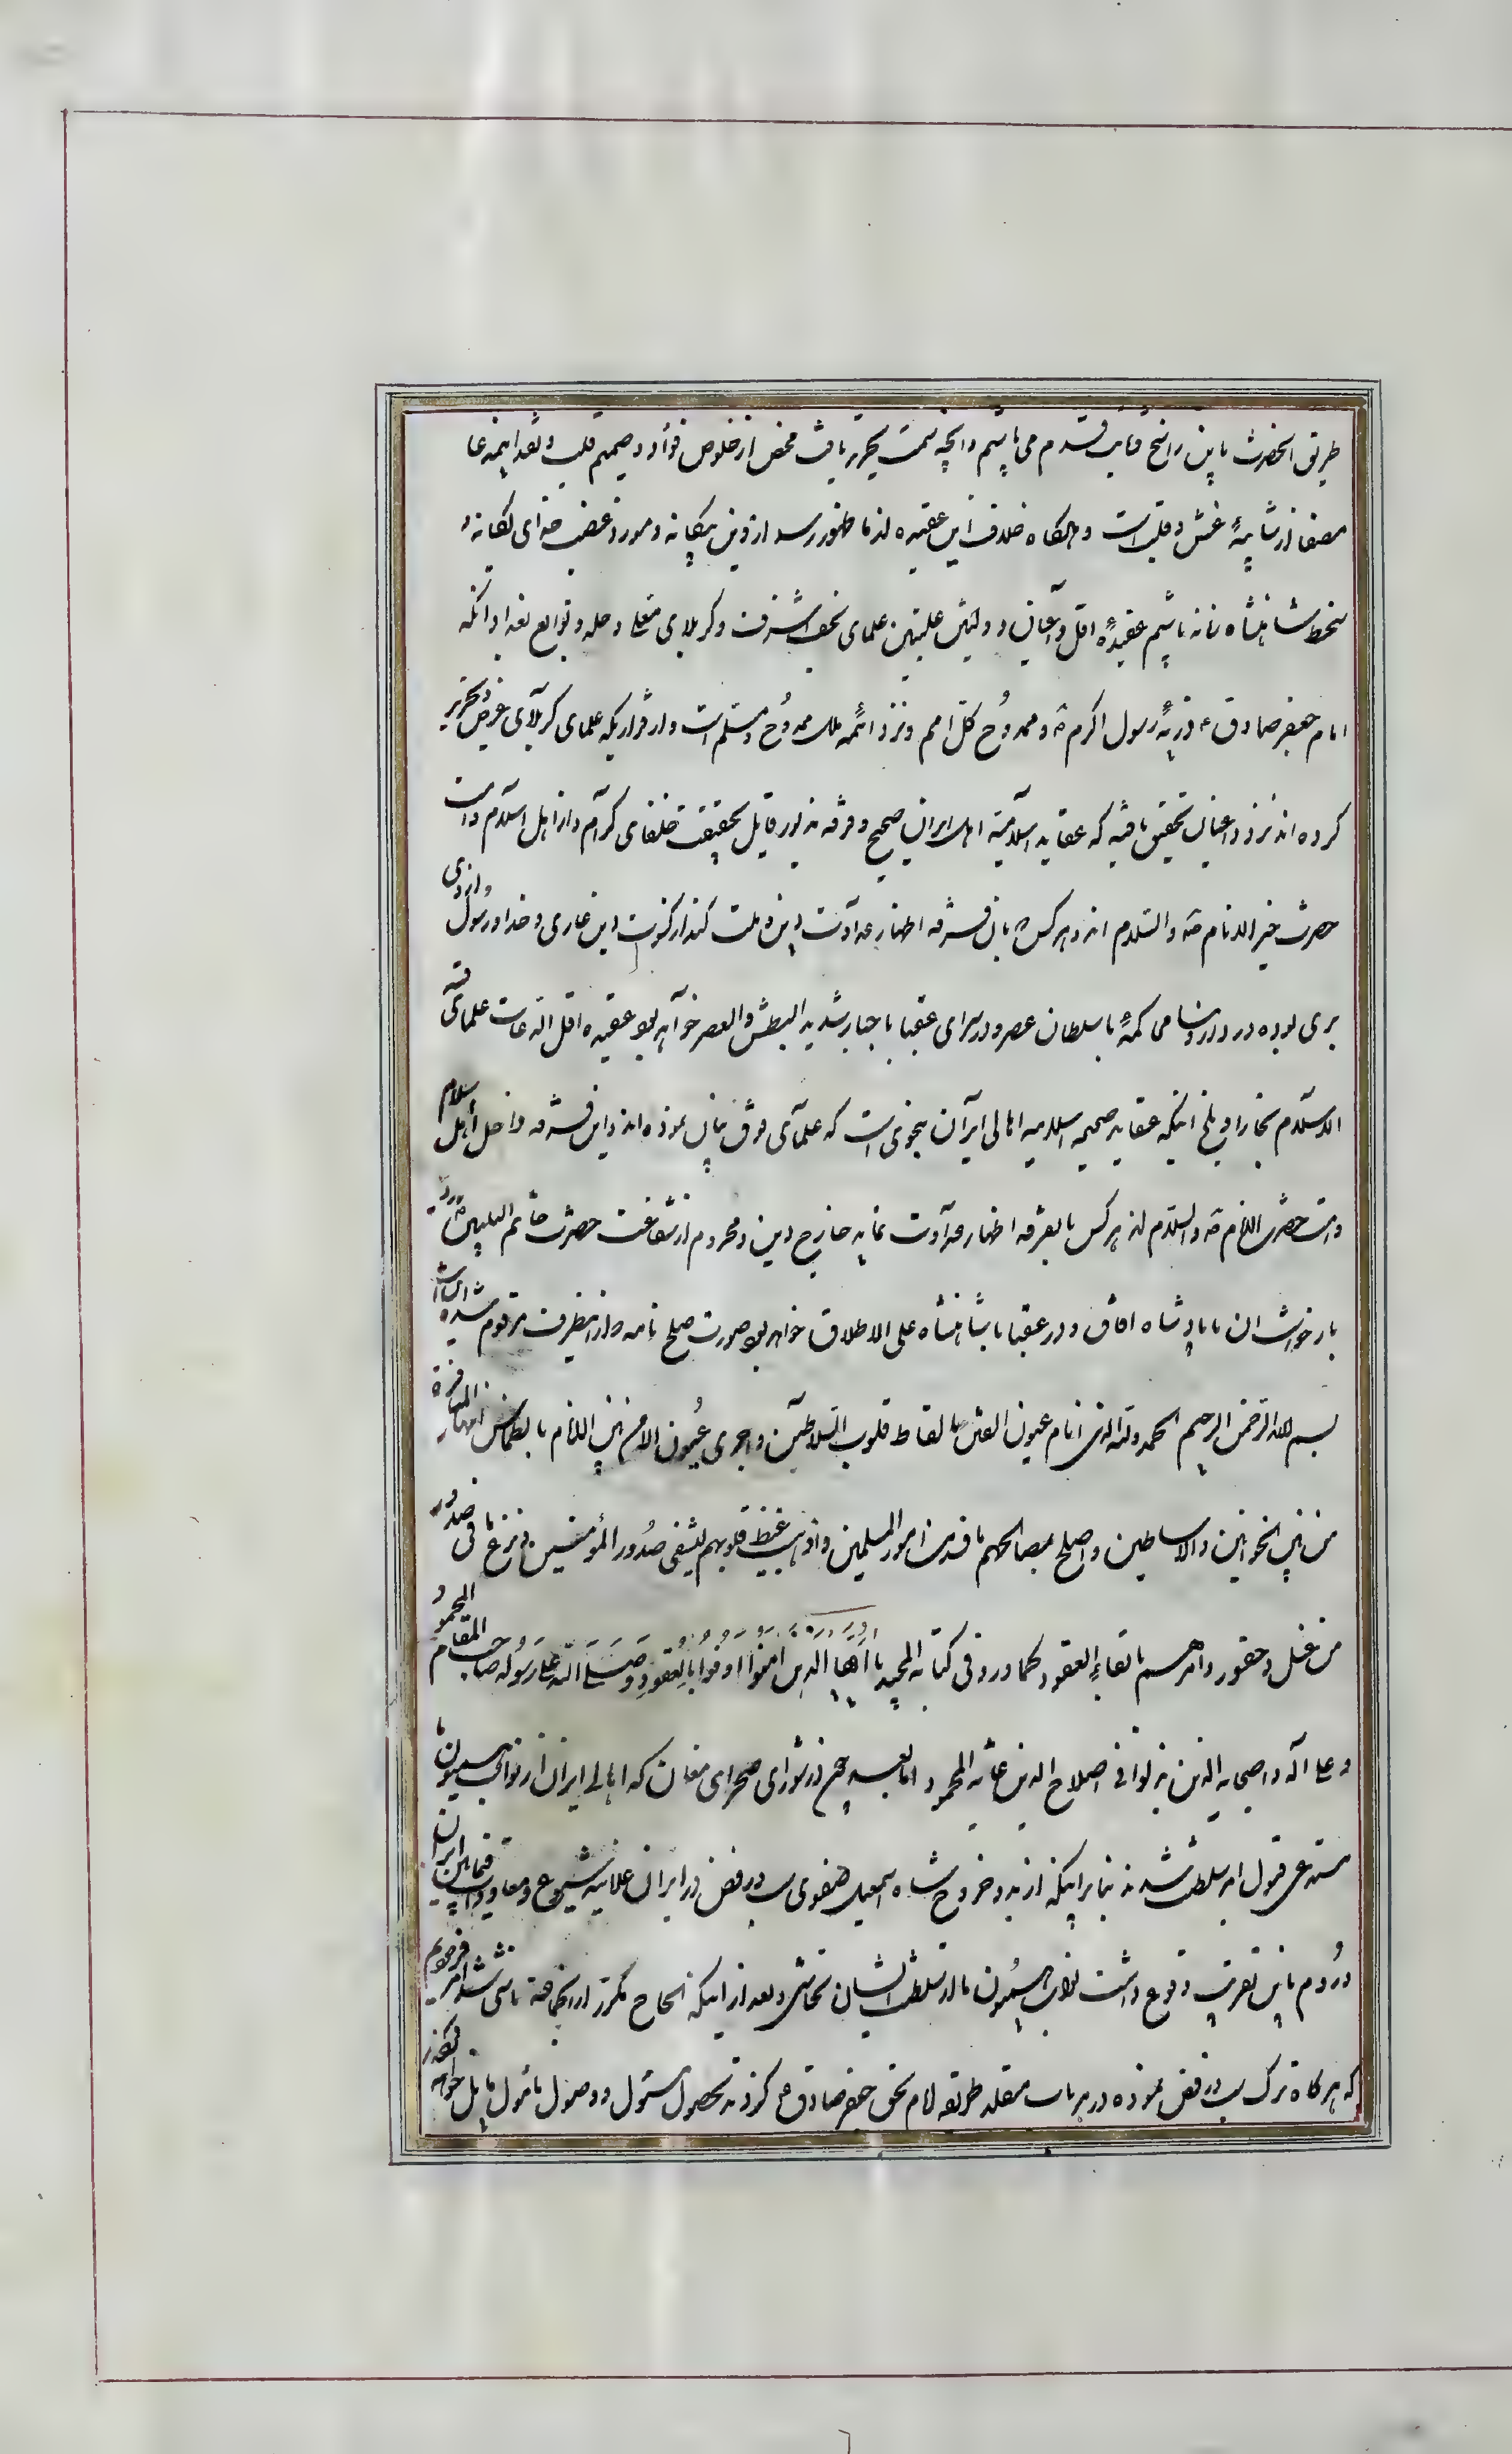 طریق آنحضرت باین راسخ و ثابت قدم می باشیم و آنچه سمت تحریر یافت محض از خلوص فواد و صمیم قلب و تقد اینمدعا
مصفا از شایبهٔ غش و قلب است و هرگاه خلاف این عقیده از ما ظهور رسد از دین بیگانه و مورد غضب خدای یگانه و
سخط شاهنشاه زمانه باشیم عقیدهٔ اقل داعیان دولتین علیتین علمای نجف اشرف و کربلای معلی و حله و توابع بغداد آنکه
امام جعفر صادق ع ذریهٔ رسول اکرم ص و ممدوح کل امم و نزد ائمه ملت ممدوح و مسلم است و از قراریکه علمای ایران عرض و تحریر
کرده اند نزد داعیان تحقیق یافته که عقاید اسلامیه اهل ایران صحیح و فرقه مزبور قایل بحقیقت خلفای کرام و از اهل اسلام و امت
حضرت خیر الانام ص والسلام اند و هر کس بان فرقه اظهار عداوت دین و ملت کند از کسوت دین عاری و خدا و رسول از وی
بری بوده در دار دنیا محاکمهٔ با سلطان عصر و در سرای عقبا با جبار شدید البطش والقصر خواهد بود عقیده اقل الدعات علمای قبة
الاسلام بخارا و بلخ اینکه عقاید صحیحه اسلامیه اهالی ایران بنحوی است که علمای فوق بیان نموده اند و این فرقه داخل اهل اسلام
و امت حضرت خیر الانام ص والسلام اند هر کس باینفرقه اظهار عداوت نماید خارج دین و محروم از شفاعت حضرت خاتم النبیین ص در دنیا
بازخواست آن با پادشاه آفاق و در عقبا با شاهنشاه علی الاطلاق خواهد بود صورت صلح نامه و از اینطرف مرقوم شده این است
بسم الله الرحمن الرحیم الحمد لله الذی انام عیون الفتن بایقاظ قلوب السلاطین و اجری عیون الامن بین الانام بانطماس انهار المنافرة
من بین الخواقین والاساطین و اصلح بمصالحتهم ما فسد من امور المسلمین و اذهب غیظ قلوبهم لیشفی صدور المؤمنین و نزع ما فی صدورهم
من غل و حقود و امرهم بایفاء العقود کما ورد فی کتابه المجید یا ایها الذین امنوا اوفوا بالعقود و صلی الله علی رسوله صاحب المقام المحمود
و علی آله و اصحابه الذین بذلوا فی اصلاح الدین غایة المجهود اما بعد چون در شورای صحرای مغان که اهالی ایران از نواب همیون ما
مستدعی قبول امر سلطنت شدند بنابر اینکه از بدو خروج شاه اسمعیل صفوی سب و رفض در ایران علانیه شیوع و معاودات فیمابین ایران
و روم باین تقریب وقوع داشت نواب همیون ما از سلطنت ایشان تحاشی و بعد از اینکه الحاح مکرر از آنجماعت ناشی شد امر فرمودیم
که هرگاه ترک سب و رفض نموده در هر باب مقلد طریقه امام بحق جعفر صادق ع گردند بحصول مسئول و وصول مأمول نایل خواهند